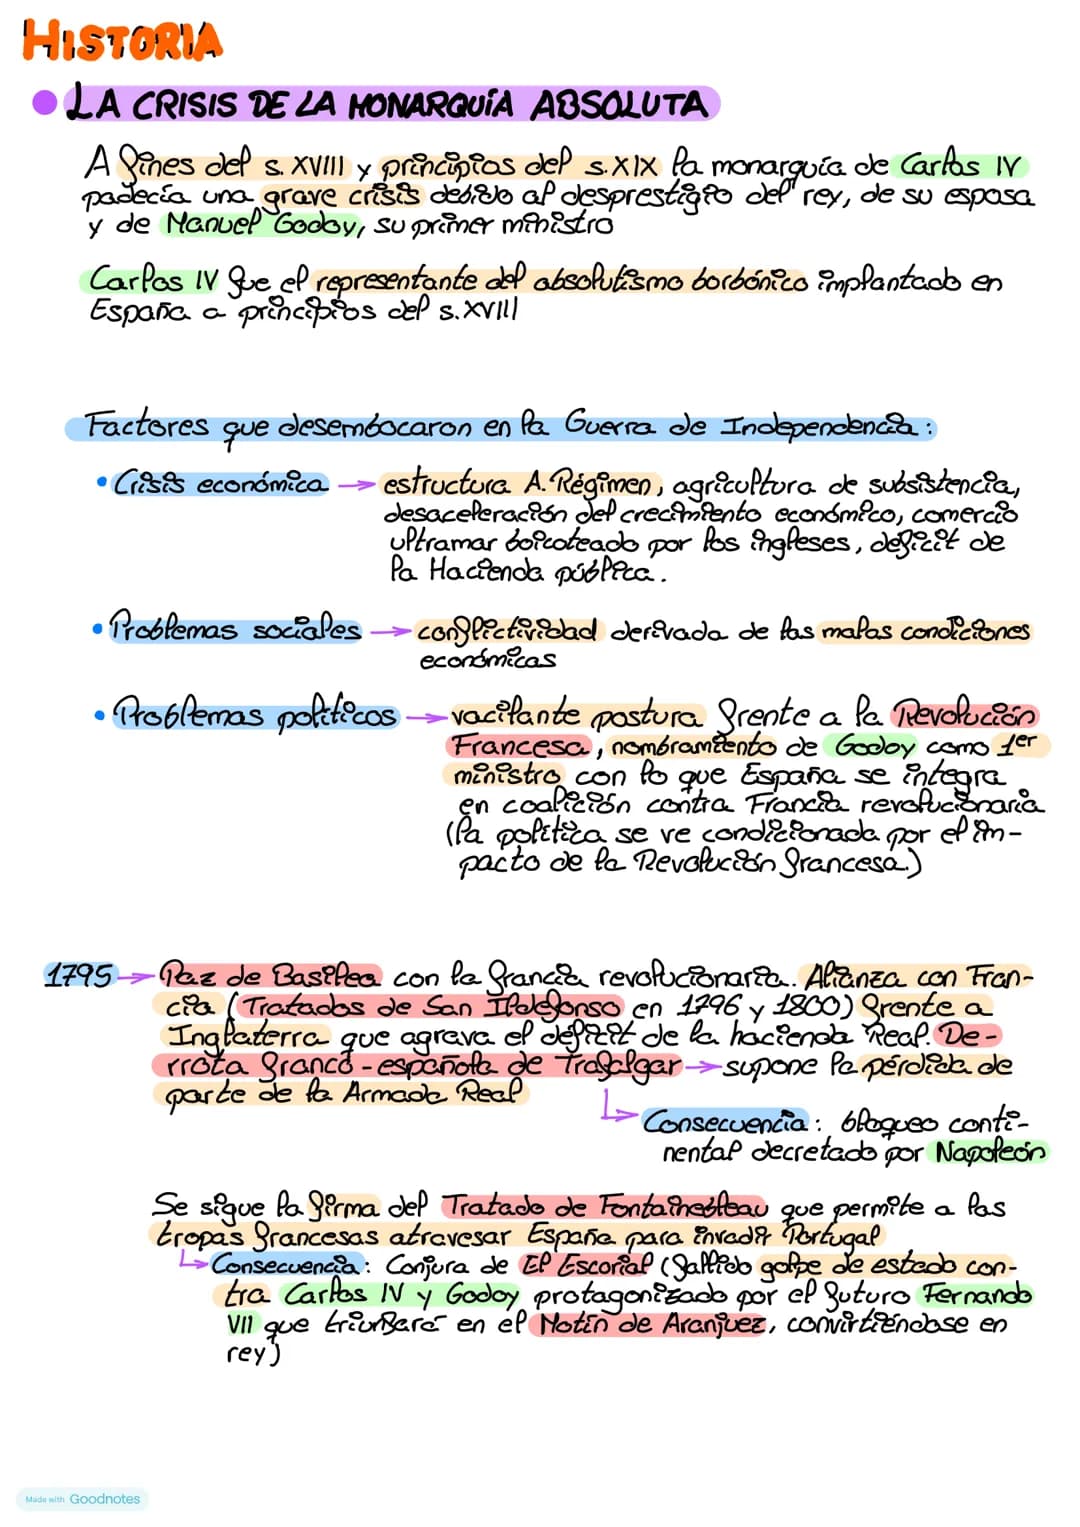 HISTORIA
LA CRISIS DE LA MONARQUÍA ABSOLUTA
A fines del s. XVIII y principios del s.XIX la monarquía de Carlos IV
padecía una grave crisis debido al desprestigio del rey, de su esposa
y de Manuel Godoy, su primer ministro
Carlos IV fue el representante del absolutismo borbónico implantado en
España a principios del s.XVIII
Factores que desembocaron en la Guerra de Independencia:
• Crisis económica → estructura A. Régimen, agricultura de subsistencia,
desaceleración del crecimiento económico, comercio
ultramar boicoteado por los ingleses, déficit de
la Hacienda pública.
• Problemas sociales → conflictividad derivada de las malas condiciones
económicas
• Problemas políticos → vacilante postura frente a la Revolución
Francesa, nombramiento de Godoy como 1er
ministro con lo que España se integra
en coalición contra Francia revolucionaria
(la política se ve condicionada por el im-
pacto de la Revolución francesa.)
1795 → Paz de Basilea con la francia revolucionaria. Alianza con Fran-
cia (Tratados de San Ildefonso en 1796 y 1800) frente a
Inglaterra que agrava el déficit de la hacienda Real. De-
rrota franco-española de Trafalgar → supone la pérdida de
parte de la Armada Real
↳ Consecuencia: bloqueo conti-
nental decretado por Napoleón
Se sigue la firma del Tratado de Fontainebleau que permite a las
tropas francesas atravesar España para invadir Portugal
↳ Consecuencia: Conjura de El Escorial (fallido golpe de estado con-
tra Carlos IV y Godoy protagonizado por el futuro Fernando
VII que triunfará en el Motín de Aranjuez, convirtiéndose en
rey)
Made with Goodnotes